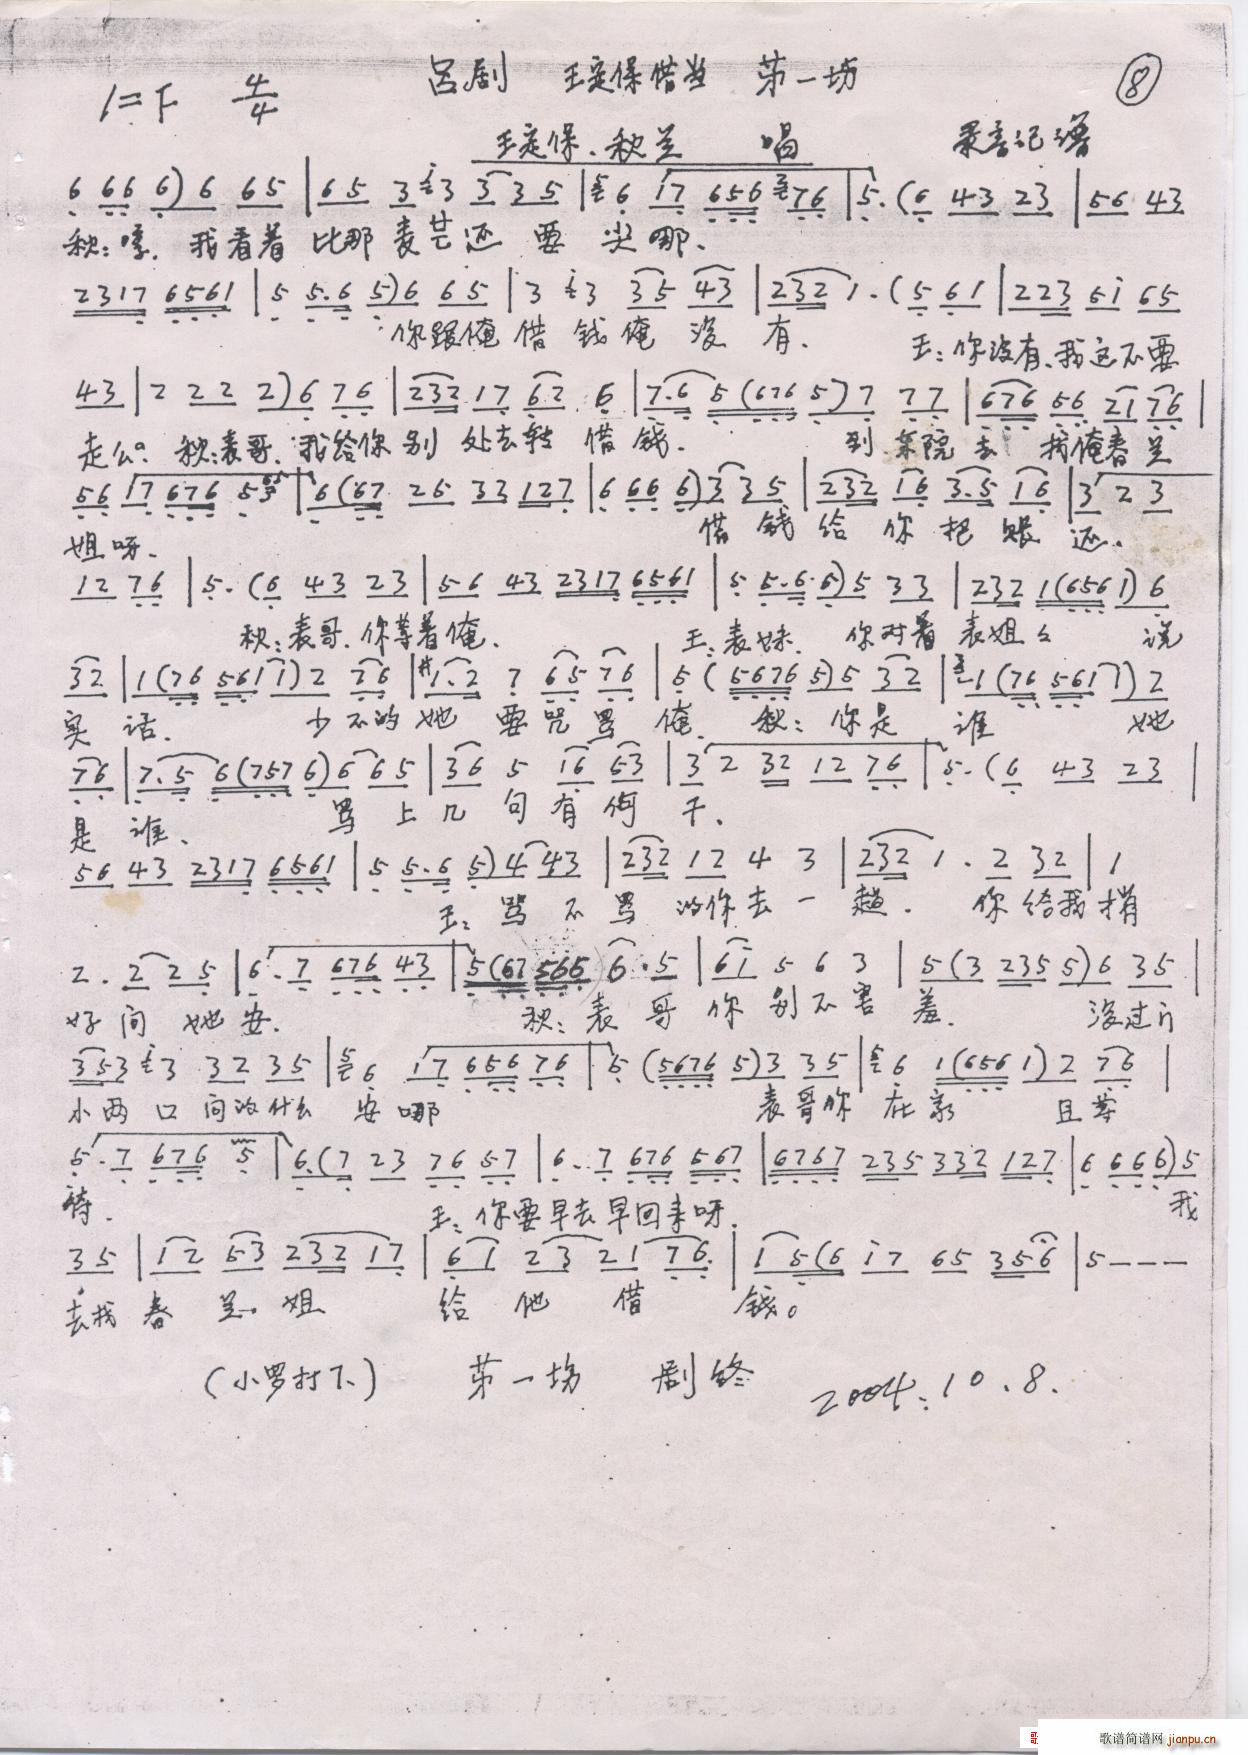 吕剧 王定保借当 第一场 ⑧
1=F 4/4
王定保、秋兰 唱 录音记谱
6 66 6) 6 65 | 65 3 3 3 35 | 6 17 656 76 | 5. (6 43 23 | 56 43
秋: 我看着比那麦芒还要尖哪.
2317 6561 | 5 5.6 5) 6 65 | 3 3 35 43 | 232 1. (5 61 | 223 51 65
你跟俺借钱俺没有. 王:你没有、我这不要
43 | 2 2 2 2) 6 76 | 232 17 62 6 | 7.6 5 (676 5) 7 77 | 676 56 21 76 |
走么? 秋:表哥.我给你别处去转借钱. 到 院去 找俺春兰
56 17 676 5 | 6 (67 25 33 127 | 6 66 6) 3 35 | 232 16 3.5 16 | 3 2 3
姐呀. 借钱给你把账还.
12 76 | 5. (6 43 23 | 56 43 2317 6561 | 5 5.6 5) 5 33 | 232 1(6561) 6
秋:表哥.你等着俺. 王:表妹. 你对着表姐么说
32 | 1(76 561 1) 2 76 | #1.2 7 65 76 | 5 (5676 5) 5 32 | 1 (76 561 1) 2
实话. 少不的她要咒骂俺. 秋:你是谁她
76 | 7.5 6(757 6) 6 65 | 36 5 16 53 | 3 2 32 12 76 | 5. (6 43 23 |
是谁、 骂上几句有何干.
56 43 2317 6561 | 5 5.6 5) 4 43 | 232 12 4 3 | 232 1. 2 32 | 1
王:骂不骂的你去一趟. 你给我捎
2. 2 2 5 | 6. 7 676 43 | 5 (67 565) 6. 5 | 61 5 6 3 | 5 (3 235 5) 6 35 |
好问她安. 秋:表哥你别不害羞. 没过门
353 3 32 35 | 6 17 656 76 | 5 (5676 5) 3 35 | 6 1(656 1) 2 76 |
小两口问的什么安哪 表哥你在家且等
5. 7 676 5 | 6. (7 23 76 57 | 6. 7 676 567 | 6767 235 332 127 | 6 66 6) 5
待. 王:你要早去早回来呀. 我
35 | 12 53 232 17 | 61 23 21 76 | 1 5 (6 17 65 356 | 5---
去找春兰.姐 给他借钱。
(小罗打下) 第一场 剧终 2004.10.8.
歌谱简谱网 jianpu.cn